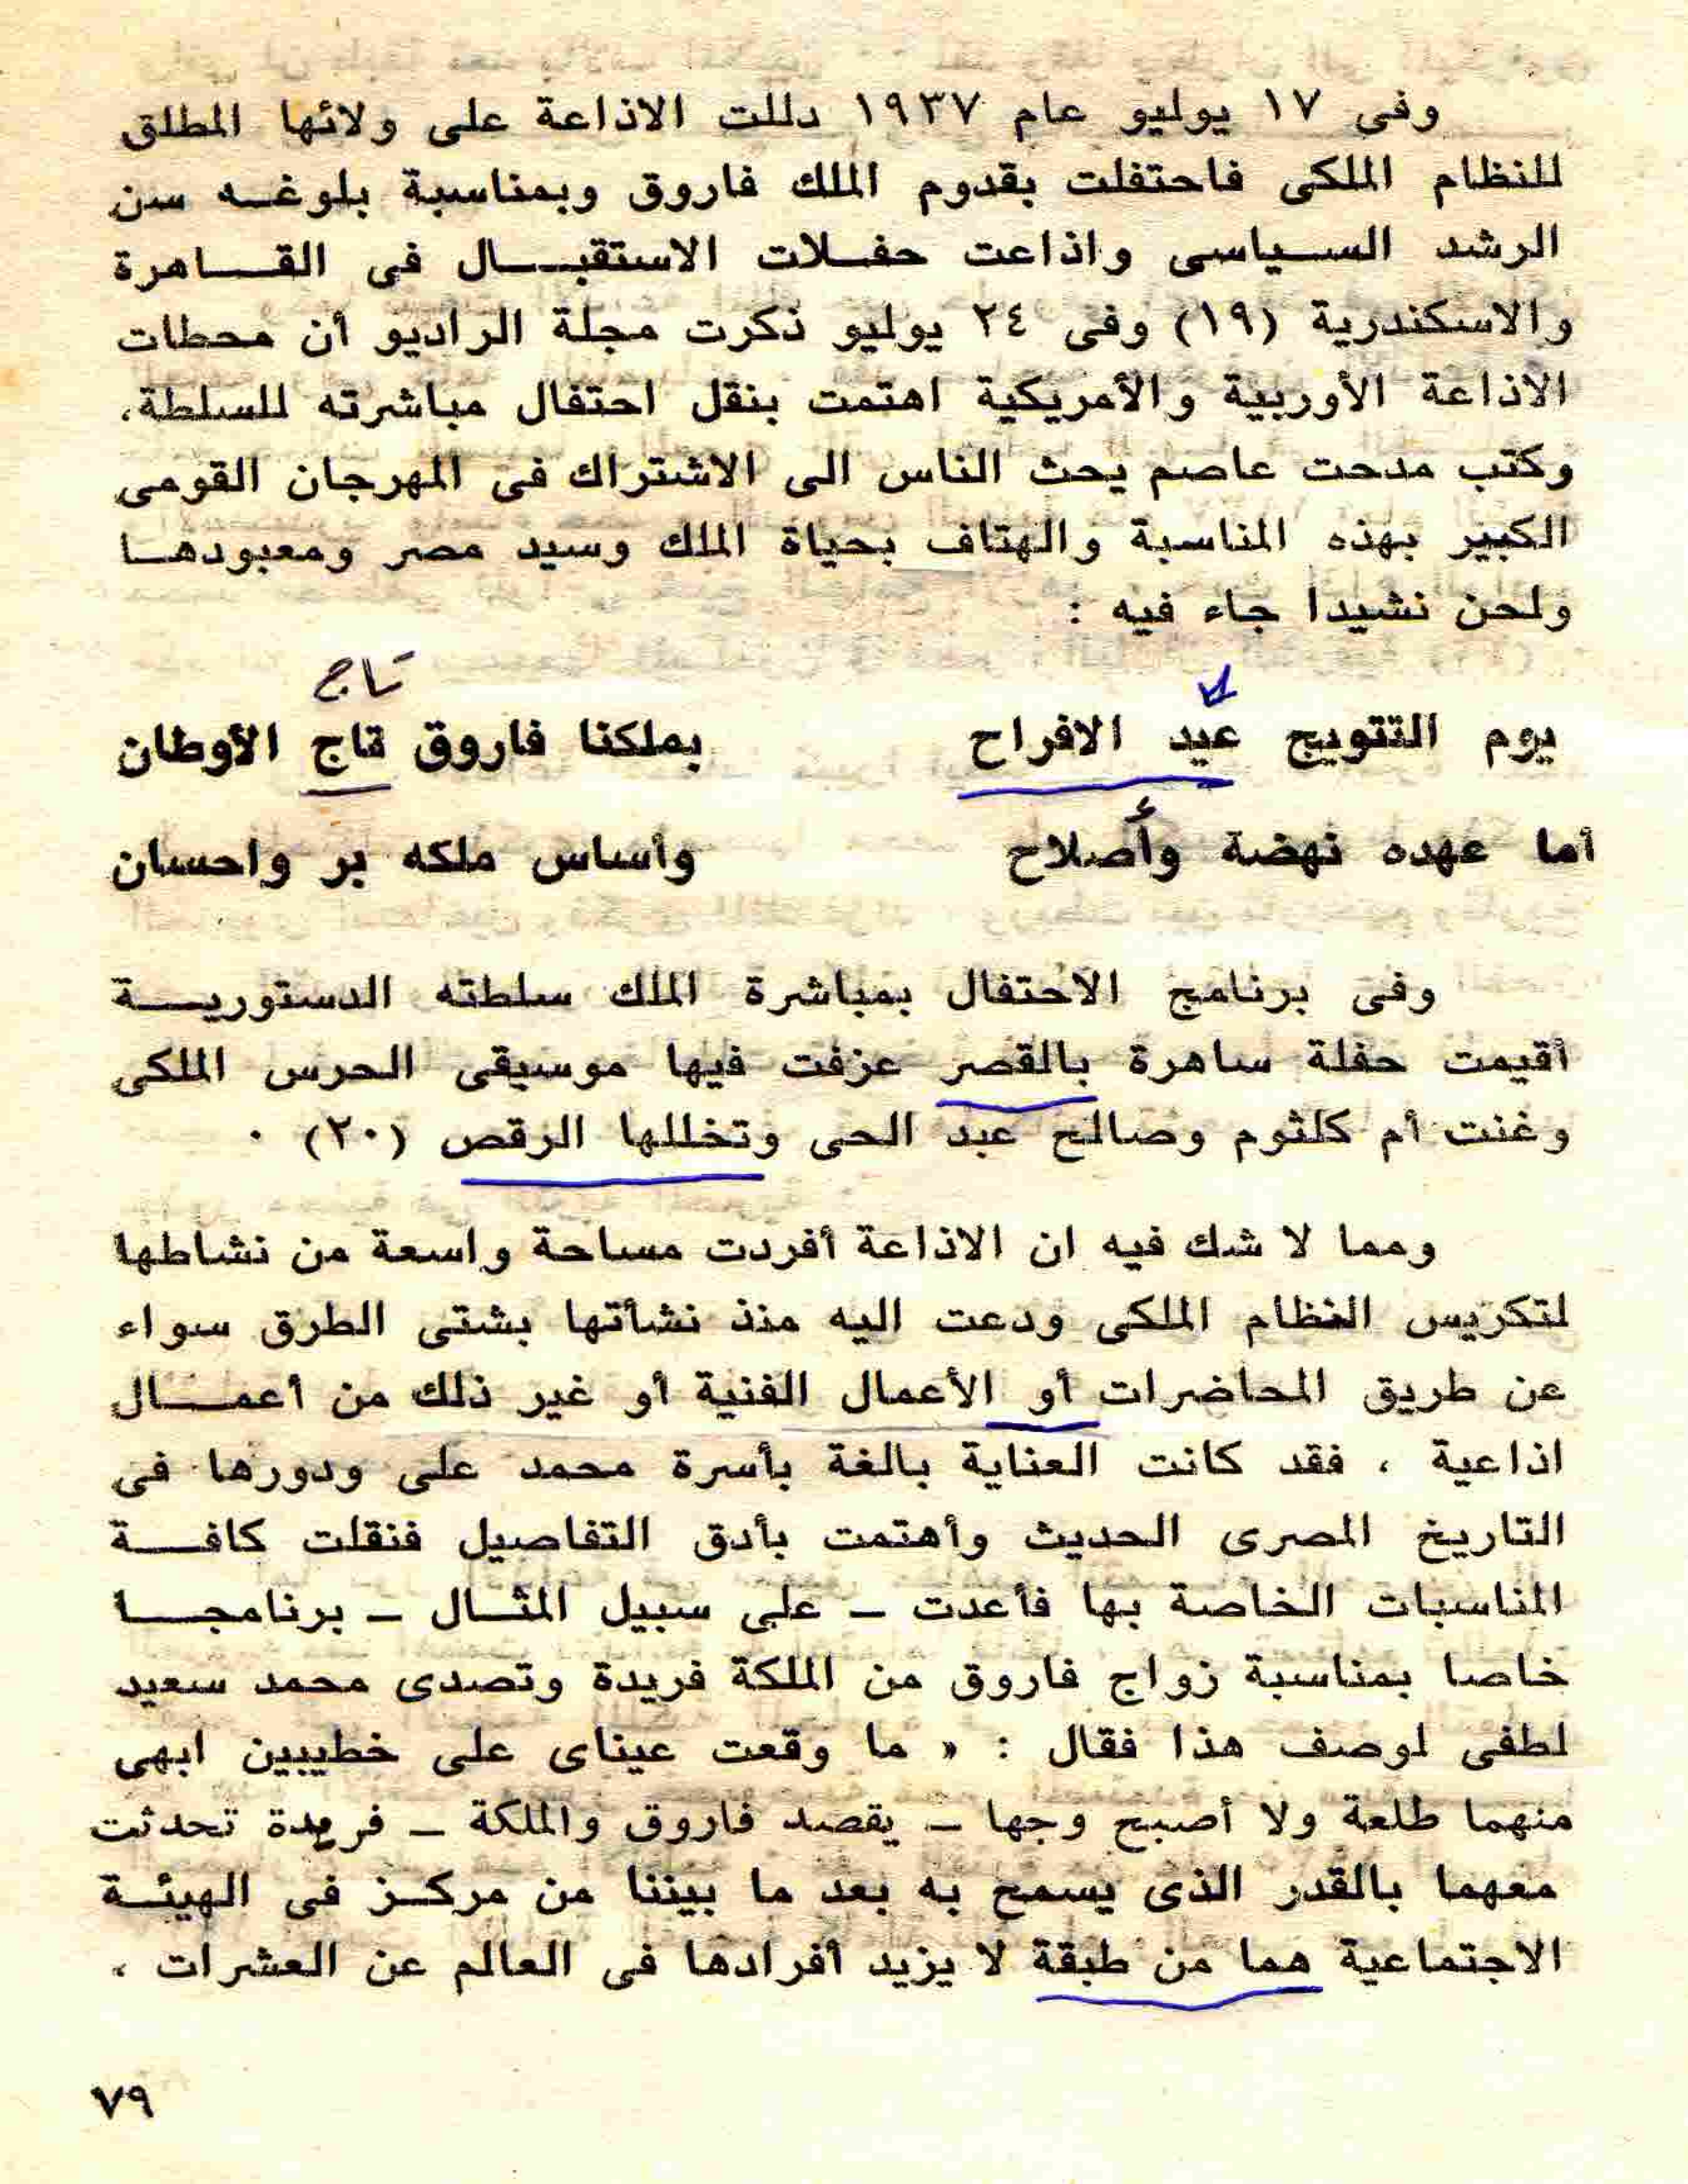 وفى ١٧ يوليو عام ١٩٣٧ دللت الاذاعة على ولائها المطلق
للنظام الملكى فاحتفلت بقدوم الملك فاروق وبمناسبة بلوغه سن
الرشد السياسى واذاعت حفلات الاستقبال فى القاهرة
والاسكندرية (١٩) وفى ٢٤ يوليو ذكرت مجلة الراديو أن محطات
الاذاعة الأوربية والأمريكية اهتمت بنقل احتفال مباشرته للسلطة،
وكتب مدحت عاصم يحث الناس الى الاشتراك فى المهرجان القومى
الكبير بهذه المناسبة والهتاف بحياة الملك وسيد مصر ومعبودها
ولحن نشيدا جاء فيه :
تاج
يوم التتويج عيد الافراح بملكنا فاروق تاج الأوطان
أما عهده نهضة وأصلاح وأساس ملكه بر واحسان
وفى برنامج الاحتفال بمباشرة الملك سلطته الدستورية
أقيمت حفلة ساهرة بالقصر عزفت فيها موسيقى الحرس الملكى
وغنت أم كلثوم وصالح عبد الحى وتخللها الرقص (٢٠) .
ومما لا شك فيه ان الاذاعة أفردت مساحة واسعة من نشاطها
لتكريس النظام الملكى ودعت اليه منذ نشأتها بشتى الطرق سواء
عن طريق المحاضرات أو الأعمال الفنية أو غير ذلك من أعمال
اذاعية ، فقد كانت العناية بالغة بأسرة محمد على ودورها فى
التاريخ المصرى الحديث وأهتمت بأدق التفاصيل فنقلت كافة
المناسبات الخاصة بها فأعدت – على سبيل المثال – برنامجا
خاصا بمناسبة زواج فاروق من الملكة فريدة وتصدى محمد سعيد
لطفى لوصف هذا فقال : « ما وقعت عيناى على خطيبين ابهى
منهما طلعة ولا أصبح وجها – يقصد فاروق والملكة – فريدة تحدثت
معهما بالقدر الذى يسمح به بعد ما بيننا من مركز فى الهيئة
الاجتماعية هما من طبقة لا يزيد أفرادها فى العالم عن العشرات ،
٧٩